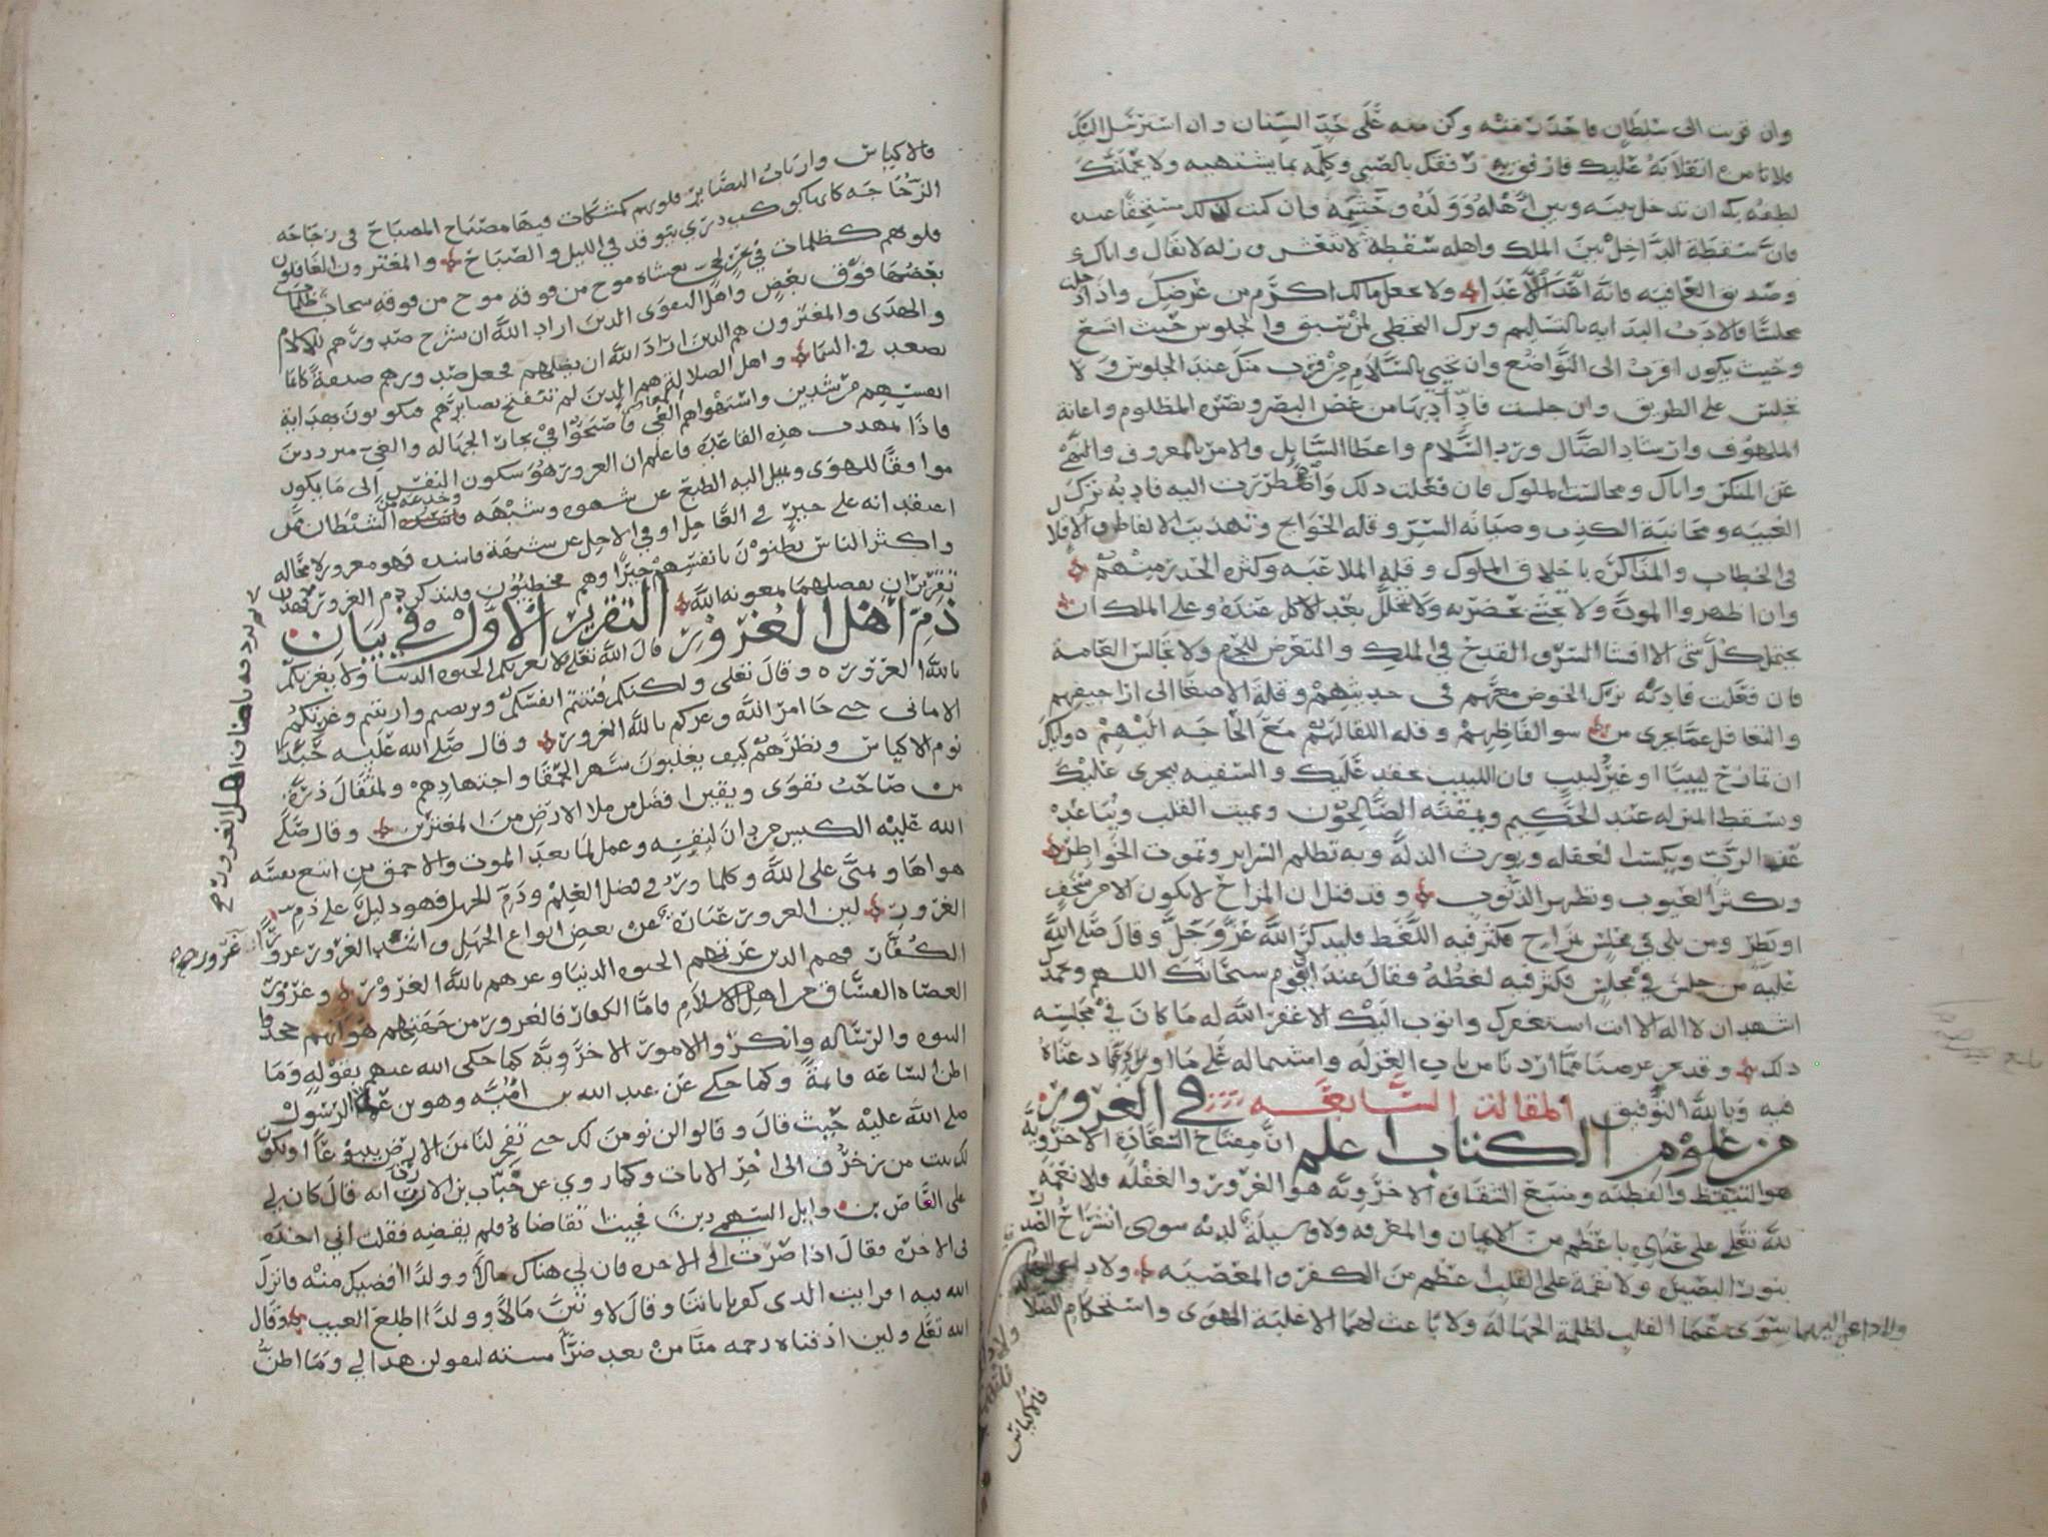 وان قربت الى سلطان فاحذر منه وكن منه على حد السنان وان استرسل اليك
فلا تامن انقلابه عليك وارفق به رفقك بالصبي وكلمه بما يشتهيه ولا يحملنك
لطفه بك ان تدخل بينه وبين اهله وولده وحشمه وان كنت لذلك مستحقا عنده
فان سقطة الداخل بين الملك واهله سقطة لا تنعش وزلة لا تقال واياك
وصديق العافيه فانه اعدا الاعدا ولا تجعل مالك اكرم من عرضك واذا دخلت
مجلسا فالادب البدايه بالتسليم وترك التخطي لمن سبق والجلوس حيث اتسع
وحيث يكون اقرب الى التواضع وان تحيي بالسلام من قرب منك عند الجلوس ولا
تجلس على الطريق وان جلست فادابها من غض البصر ونصرة المظلوم واعانة
الملهوف وارشاد الضال ورد السلام واعطا السايل والامر بالمعروف والنهي
عن المنكر واياك ومجالسة الملوك فان فعلت ذلك واضطررت اليه فادبه ترك
الغيبه ومجانبة الكذب وصيانه السر وقله الحوايج وتهذيب الالفاظ
في الخطاب والمذاكره باخلاق الملوك وقلة الملاعبه وكثره الحذر منهم
وان اظهروا المودة ولا يتجشى بحضرته ولا يتخلل بعد الاكل عنده وعلى الملك ان
يحتمل كل شي الا افشا السر والقدح في الملك والتعرض للحرم ولا تجالس العامة
فان فعلت فادبه ترك الخوض معهم في حديثهم وقلة الاصغا الى اراجيفهم
والتغافل عما يجرى من سو الفاظهم وقلة اللقا لهم مع الحاجه اليهم واياك
ان تمازح لبيبا او غير لبيب فان اللبيب يحقد عليك والسفيه يجرى عليك
ويسقط المنزله عند الحكيم ويمقته الصالحون ويميت القلب ويباعد
عن الرب ويكسب الغفله ويورث الذلة وبه تظلم السراير وتموت الخواطر
وبكثر العيوب وتظهر الذنوب وقد قيل ان المزاح لا يكون الا من سخف
او بطر ومن بلي في مجلس بمزاح فكثر فيه اللغط فليذكر الله عز وجل وقال صلى الله
عليه من جلس في مجلس فكثر فيه لغطه وقال عند القوم سبحانك اللهم وبحمدك
اشهد ان لا اله الا انت استغفرك واتوب اليك الا غفر الله له ما كان في مجلسه
ذلك وقد نجز غرضنا مما اردنا من باب العزله واشتماله على ما اوردناه
فيه وبالله التوفيق المقالة السابعة في الغرور
من علوم الكتاب اعلم ان مفتاح السعادة الاخرويه
هو التيقظ والفطنه ومنبع الشقاوة الاخرويه هو الغرور والغفله فلا نعمة
لله تعلى على عباده باعظم من الايمان والمعرفه ولا وسيلة لديه سوى انشراح الصدر
بنور البصيره ولا نقمة على القلب اعظم من الكفر والمعصيه
ولا داعي اليهما سوى عما القلب لظلمة الجهالة ولا باعث لهما الا غلبة الهوى واستحكام
فالاكياس
فالاكياس وارباب البصاير قلوبهم كمشكاة فيها مصباح المصباح في زجاجه
الزجاجه كانها كوكب دري يتوقد في الليل والصباح والمغترون الغافلون
قلوبهم كظلمات في بحر لجي يغشاه موج من فوقه موج من فوقه سحاب ظلمات
بعضها فوق بعض واهل التقوى الذين اراد الله ان يشرح صدورهم للاسلام
والهدى والمغترون هم الذين اراد الله ان يضلهم فجعل صدورهم ضيقة كانما
يصعد في السما واهل الضلالة هم الذين لم تنفتح بصايرهم فيكونون بهداية
انفسهم مرشدين واستهواهم الغي فاصبحوا في بحار الجهاله والغي مترددين
فاذا تمهدت هذه القاعدة فاعلم ان الغرور هو سكون النفس الى ما يكون
موافقا للهوى ويميل اليه الطبع عن شهوه وشبهه وخدعة من الشيطان فمن
اعتقد انه على خير في العاجل او في الاجل عن شبهة فاسده فهو مغرور لا محاله
واكثر الناس يظنون بانفسهم خيرا وهم مخطئون فلنذكر ذم الغرور
تقريرين نفصلهما بمعونه الله التقرير الاول في بيان
ذم اهل الغرور قال الله تعلى لا تغرنكم الحيوه الدنيا ولا يغرنكم
بالله الغرور وقال تعلى ولكنكم فتنتم انفسكم وتربصتم وارتبتم وغرتكم
الاماني حتى جا امر الله وغركم بالله الغرور وقال صلى الله عليه حبذا
نوم الاكياس وفطرهم كيف يغلبون سهر الحمقا واجتهادهم ولمثقال ذرة
من صاحب تقوى ويقين افضل من ملا الارض من المغترين وقال صلى
الله عليه الكيس من دان نفسه وعمل لما بعد الموت والاحمق من اتبع نفسه
هواها وتمنى على الله وكلما ورد في فضل العلم وذم الجهل فهو دليل على ذم
الغرور لان الغرور عبارة عن بعض انواع الجهل واشد الغرور غرور
الكفار فهم الذين غرتهم الحيوه الدنيا وغرهم بالله الغرور وغرور
العصاه الفساق من اهل الاسلام فاما الكفار فالغرور من جهتهم هو انهم جحدوا
النبوه والرسالة وانكروا الامور الاخرويه كما حكى الله عنهم بقوله وما
اظن الساعه قائمة وكما حكي عن عبد الله بن امية وهو بن عمة الرسول
صلى الله عليه حيث قال وقالوا لن نومن لك حتى تفجر لنا من الارض ينبوعا او يكون
لك بيت من زخرف الى اخر الايات وكما روي عن خباب بن الارت انه قال كان لي
على العاص بن وايل السهمي دين فجيت اتقاضاه فلم يقضه فقلت اني اخذه
في الاخرة فقال اذا صرت الى الاخره فان لي هناك مالا وولدا افضيك منه فانزل
الله فيه افرايت الذي كفر باياتنا وقال لاوتين مالا وولدا اطلع الغيب وقال
الله تعلى ولين اذقناه رحمه منا من بعد ضرا مسته ليقولن هذا لي وما اظن